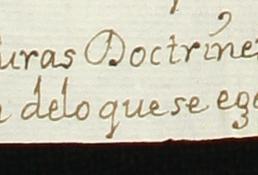 uras Doctrine
delo que se ege